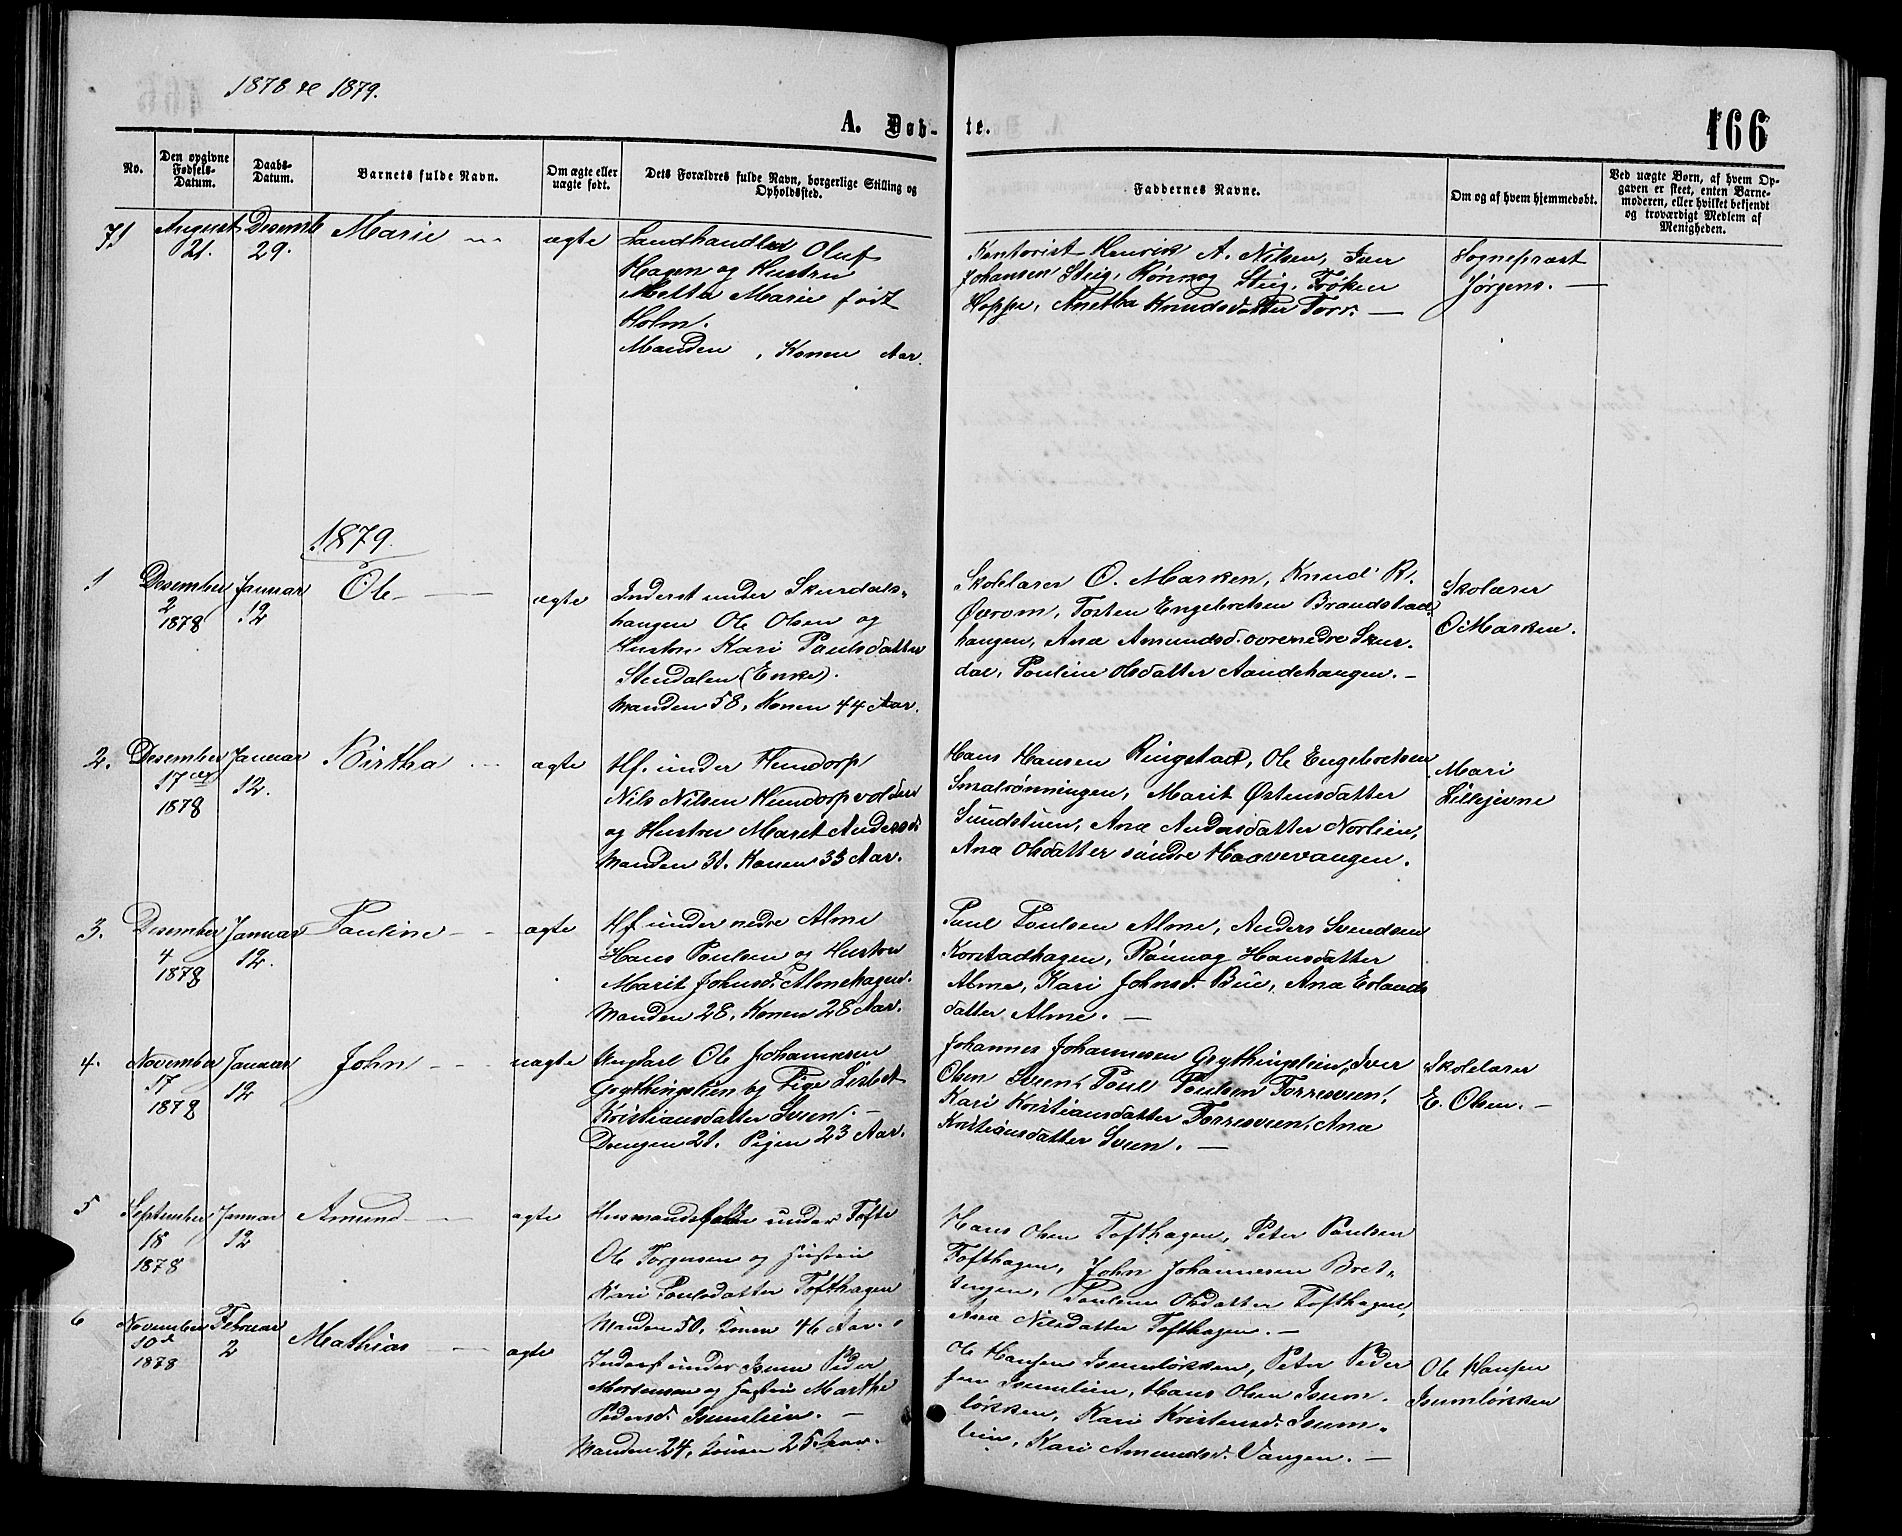 1878 & 1879.
A. Døb-
te.
166
No.
Den opgivne Fødsels-Datum.
Daabs-Datum.
Barnets fulde Navn.
Om ægte eller uægte født.
Dets Forældres fulde Navn, borgerlige Stilling og Opholdssted.
Faddernes Navne.
Om og af hvem hjemmedøbt.
Ved uægte Børn, af hvem Op-
gaven er skeet, enten Barne-
moderen, eller hvilket bekjendt
og troværdigt Medlem af
Menigheden.
71
August 21.
Desemb 29.
Marie
ægte
Landhandler Oluf
Hagen og Hustru
Mette Marie født
Holm.
Manden , Konen Aar.
Kontorist Henrik A. Nilsen, Iver
Johansen Stig, Rønnog Stig, Frøken
Hoppe, Anetha Knudsdatter Torr.
Sognepræst
Jørgens.
1879.
1
Desember 2 1878
Januar 12
Ole
ægte
Inderst under Skurdals-
haugen Ole Olsen og
Hustru Kari Paulsdatter
Stendalen (Enke).
Manden 58, Konen 44 Aar.
Skolelærer O. Marken, Knud R.
Øvrom, Tosten Engebretsen Brandstad-
haugen, Ana Amundsd. Skur-
dal, Pouline Olsdatter Aandehaugen.
Skolærer
O Marken.
2.
Desember 17 1878
Januar 12.
Birtha
ægte
Hf. under Hundorp
Nils Nilsen Hundorpvolden
og Hustru Maret Andersd.
Manden 31. Konen 33 Aar.
Hans Hansen Ringstad, Ole Engebretsen
Smarønningen, Marit Østensdatter
Sundstuen, Ana Andersdatter Norlien,
Ana Olsdatter søndre Haavevangen.
Mari
Lillejevne
3.
Desember 4 1878
Januar 12.
Pauline
ægte
Hf under nedre Alme
Hans Poulsen og Hustru
Marit Johnsd. Almehagen.
Manden 28. Konen 28 Aar.
Paul Poulsen Alme, Anders Svendsen
Korstadhagen, Rønnog Hansdatter
Alme, Kari Johnsd. Bue, Ana Erlands
datter Alme.
4.
November 17 1878
Januar 12
John
uægte
Ungkarl Ole Johannesen
Grythingslien og Pige Lisbet
Kristiansdatter Sveen.
Drengen 21. Pigen 23 Aar.
Johannes Johannesen Grythingslien, Iver
Olsen Sveen, Poul Poulsen Torresveen,
Kari Kristiansdatter Torresveen, Ana
Kristiansdatter Sveen.
Skolelærer
E. Olsen.
5
September 18 1878
Januar 12
Amund
ægte
Husmandsfolk under Tofte
Ole Torgersen og Hustru
Kari Poulsdatter Tofthagen
Manden 50, Konen 46 Aar.
Hans Olsen Tofthagen, Peter Poulsen
Tofthagen, John Johannesen Bret-
tingen, Pouline Olsdatter Tofthagen,
Ana Nilsdatter Tofthagen.
6
November 10 1878
Februar 2
Mathias
ægte
Inderst under Isum Peder
Mortensen og Hustru Marthe
Pedersd. Isumlien.
Manden 24, Konen 25 Aar.
Ole Hansen Isumløkken, Peter Peder
sen Isumlien, Hans Olsen Isum-
løkken, Kari Kristensd. Isum-
lien, Kari Amundsd. Vangen.
Ole Hansen
Isumløkken